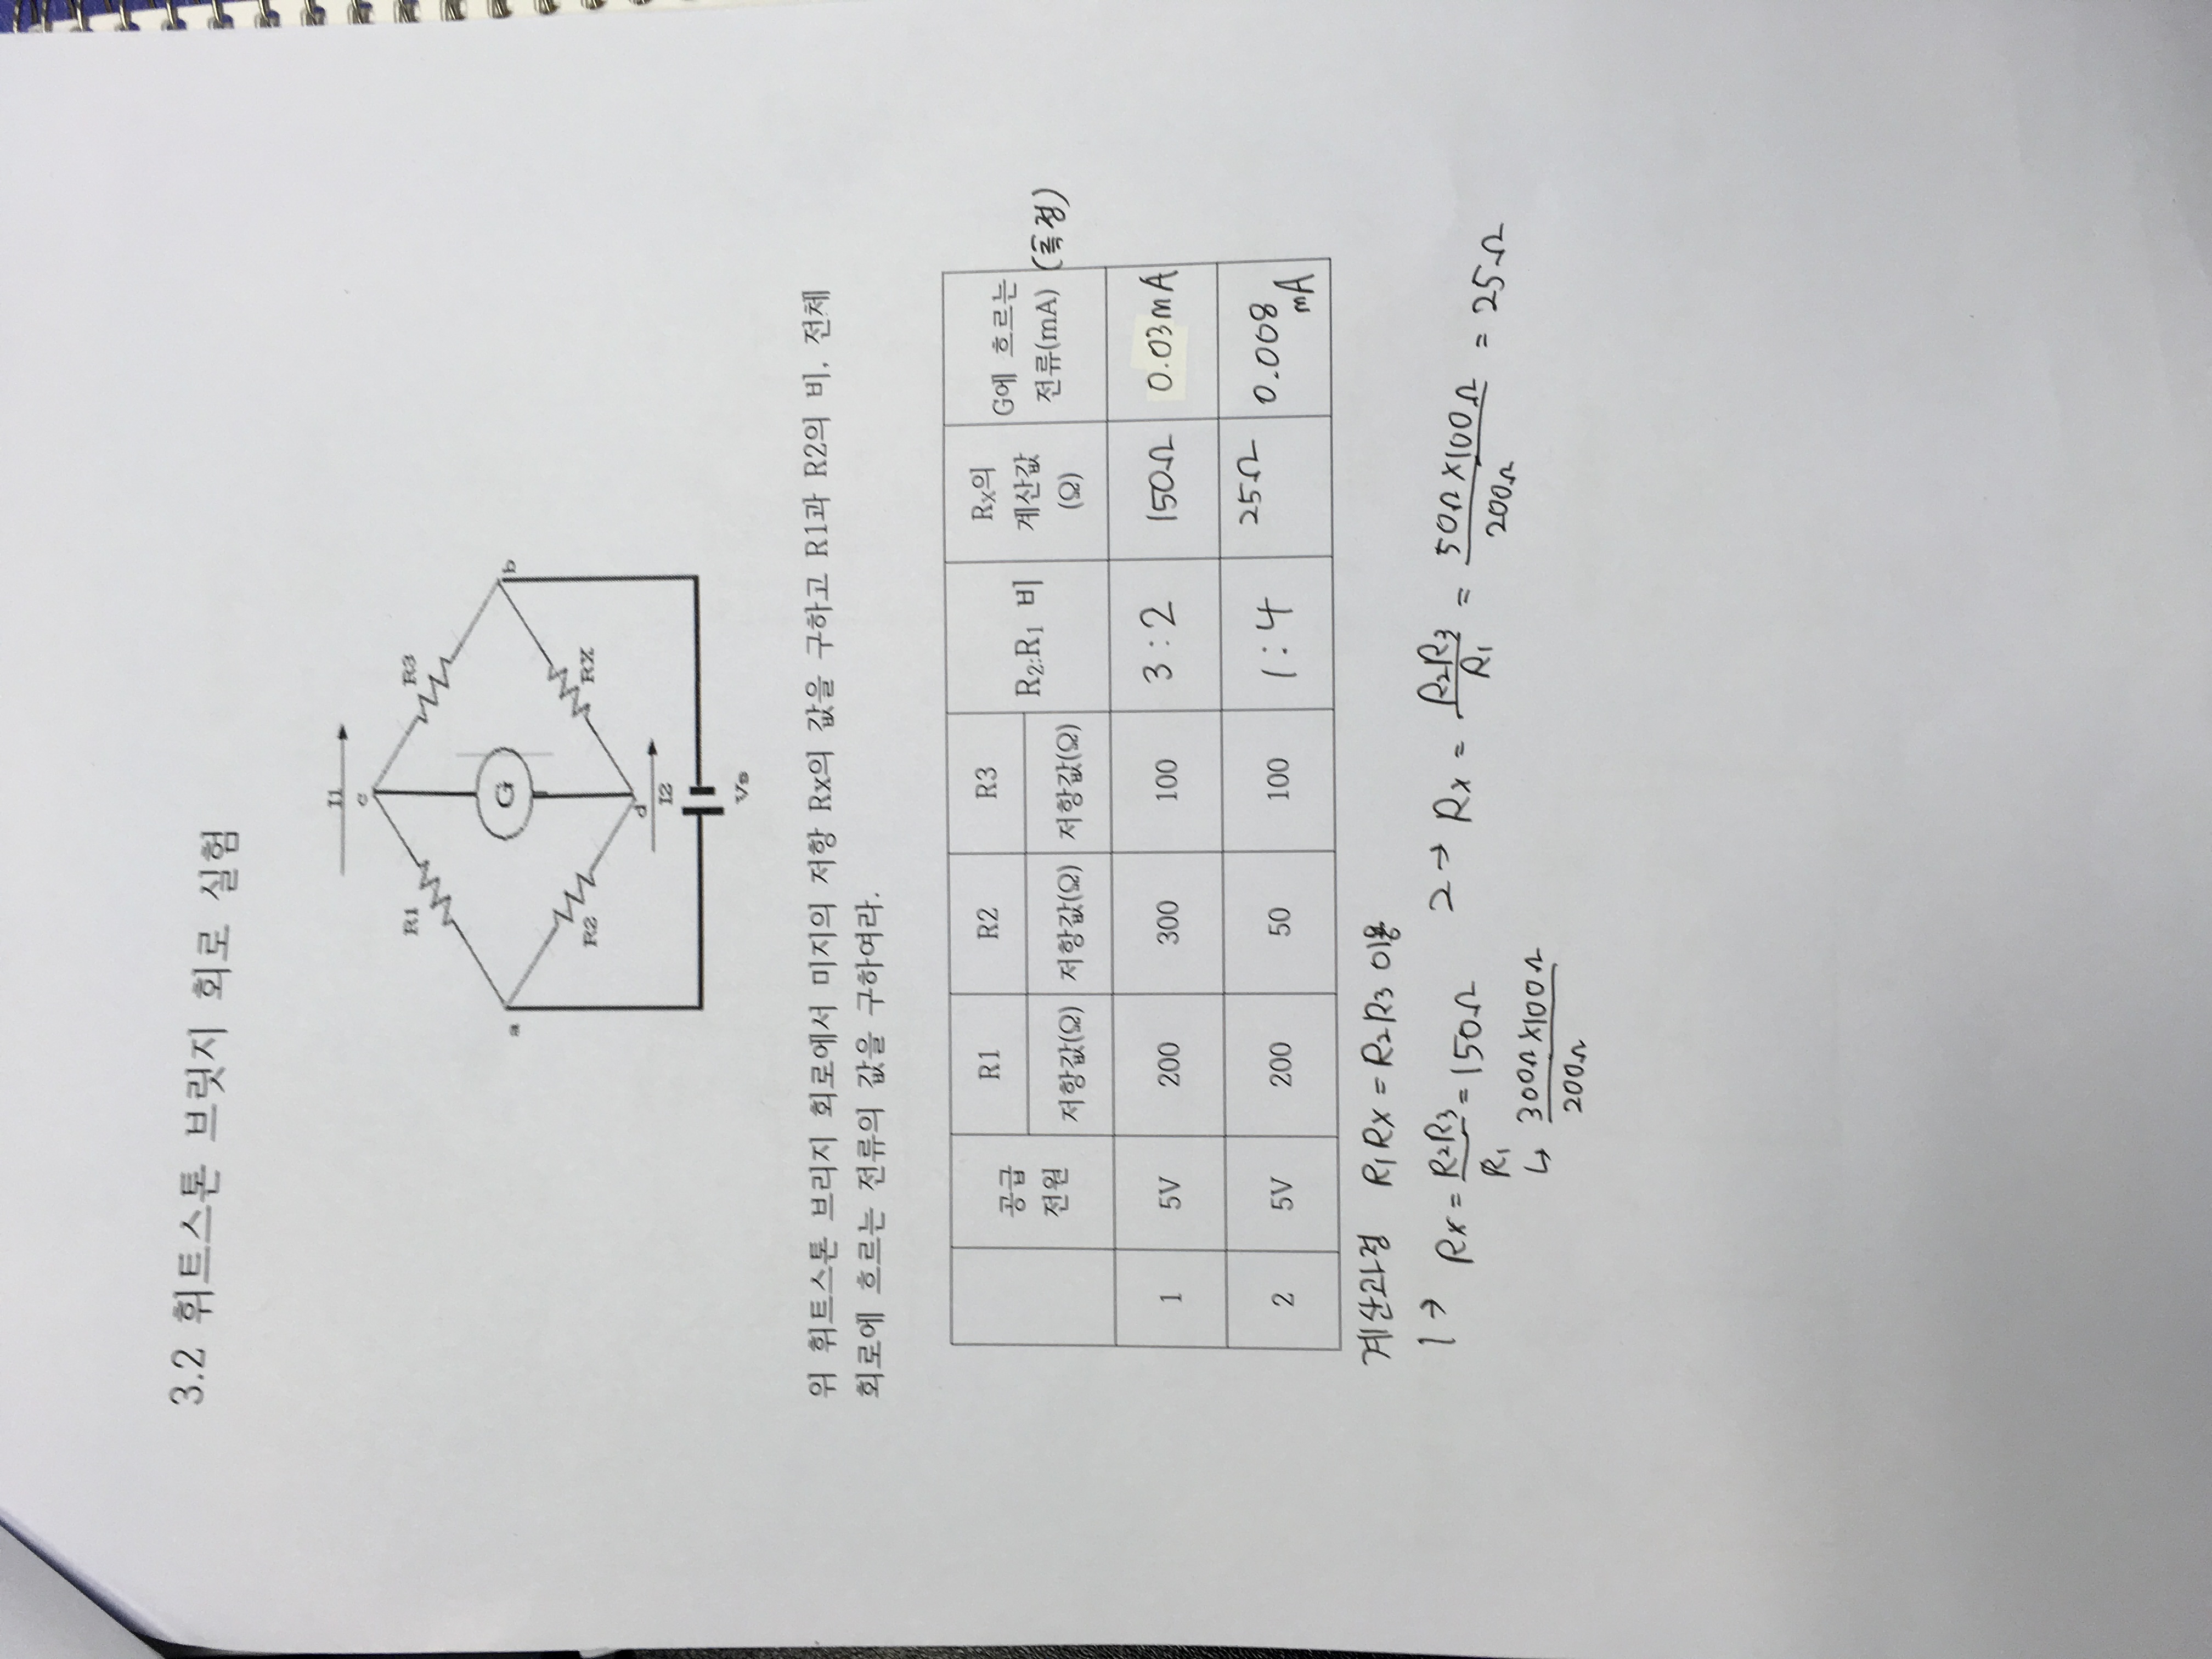 3.2 휘트스톤 브릿지 회로 실험
I1
c
R1
R3
a
G
b
R2
RX
d
I2
Vs
위 휘트스톤 브리지 회로에서 미지의 저항 Rx의 값을 구하고 R1과 R2의 비, 전체
회로에 흐르는 전류의 값을 구하여라.
공급
전원
R1
R2
R3
저항값(Ω)
저항값(Ω)
저항값(Ω)
R₂:R₁ 비
Rx의
계산값
(Ω)
G에 흐르는
전류(mA)
(측정)
1 5V 200 300 100 3:2 150Ω 0.03mA
2 5V 200 50 100 1:4 25Ω 0.008
mA
계산과정 R₁RX = R₂R₃ 이용
1→ Rx = R₂R₃/R₁ = 150Ω
↳ 300Ω×100Ω/200Ω
2→ Rx = R₂R₃/R₁ = 50Ω×100Ω/200Ω = 25Ω